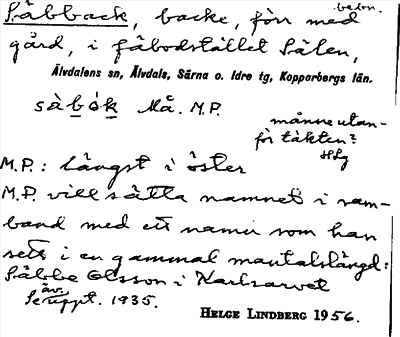 bebn.
Såbback, backe, förr med
gård, i fäbodstället Sälen,
Älvdalens sn, Älvdals, Särna o. Idre tg, Kopparbergs län.
så̀bók Må. M.P.
månne utan-
för täkten?
HLg
M.P.: långst i öster
M.P. vill sätta namnet i sam-
band med ett namn som han
sett i en gammal mantalslängd:
Såbbe Olsson i Karlsarvet
Se äv. uppt. 1935.
HELGE LINDBERG 1956.